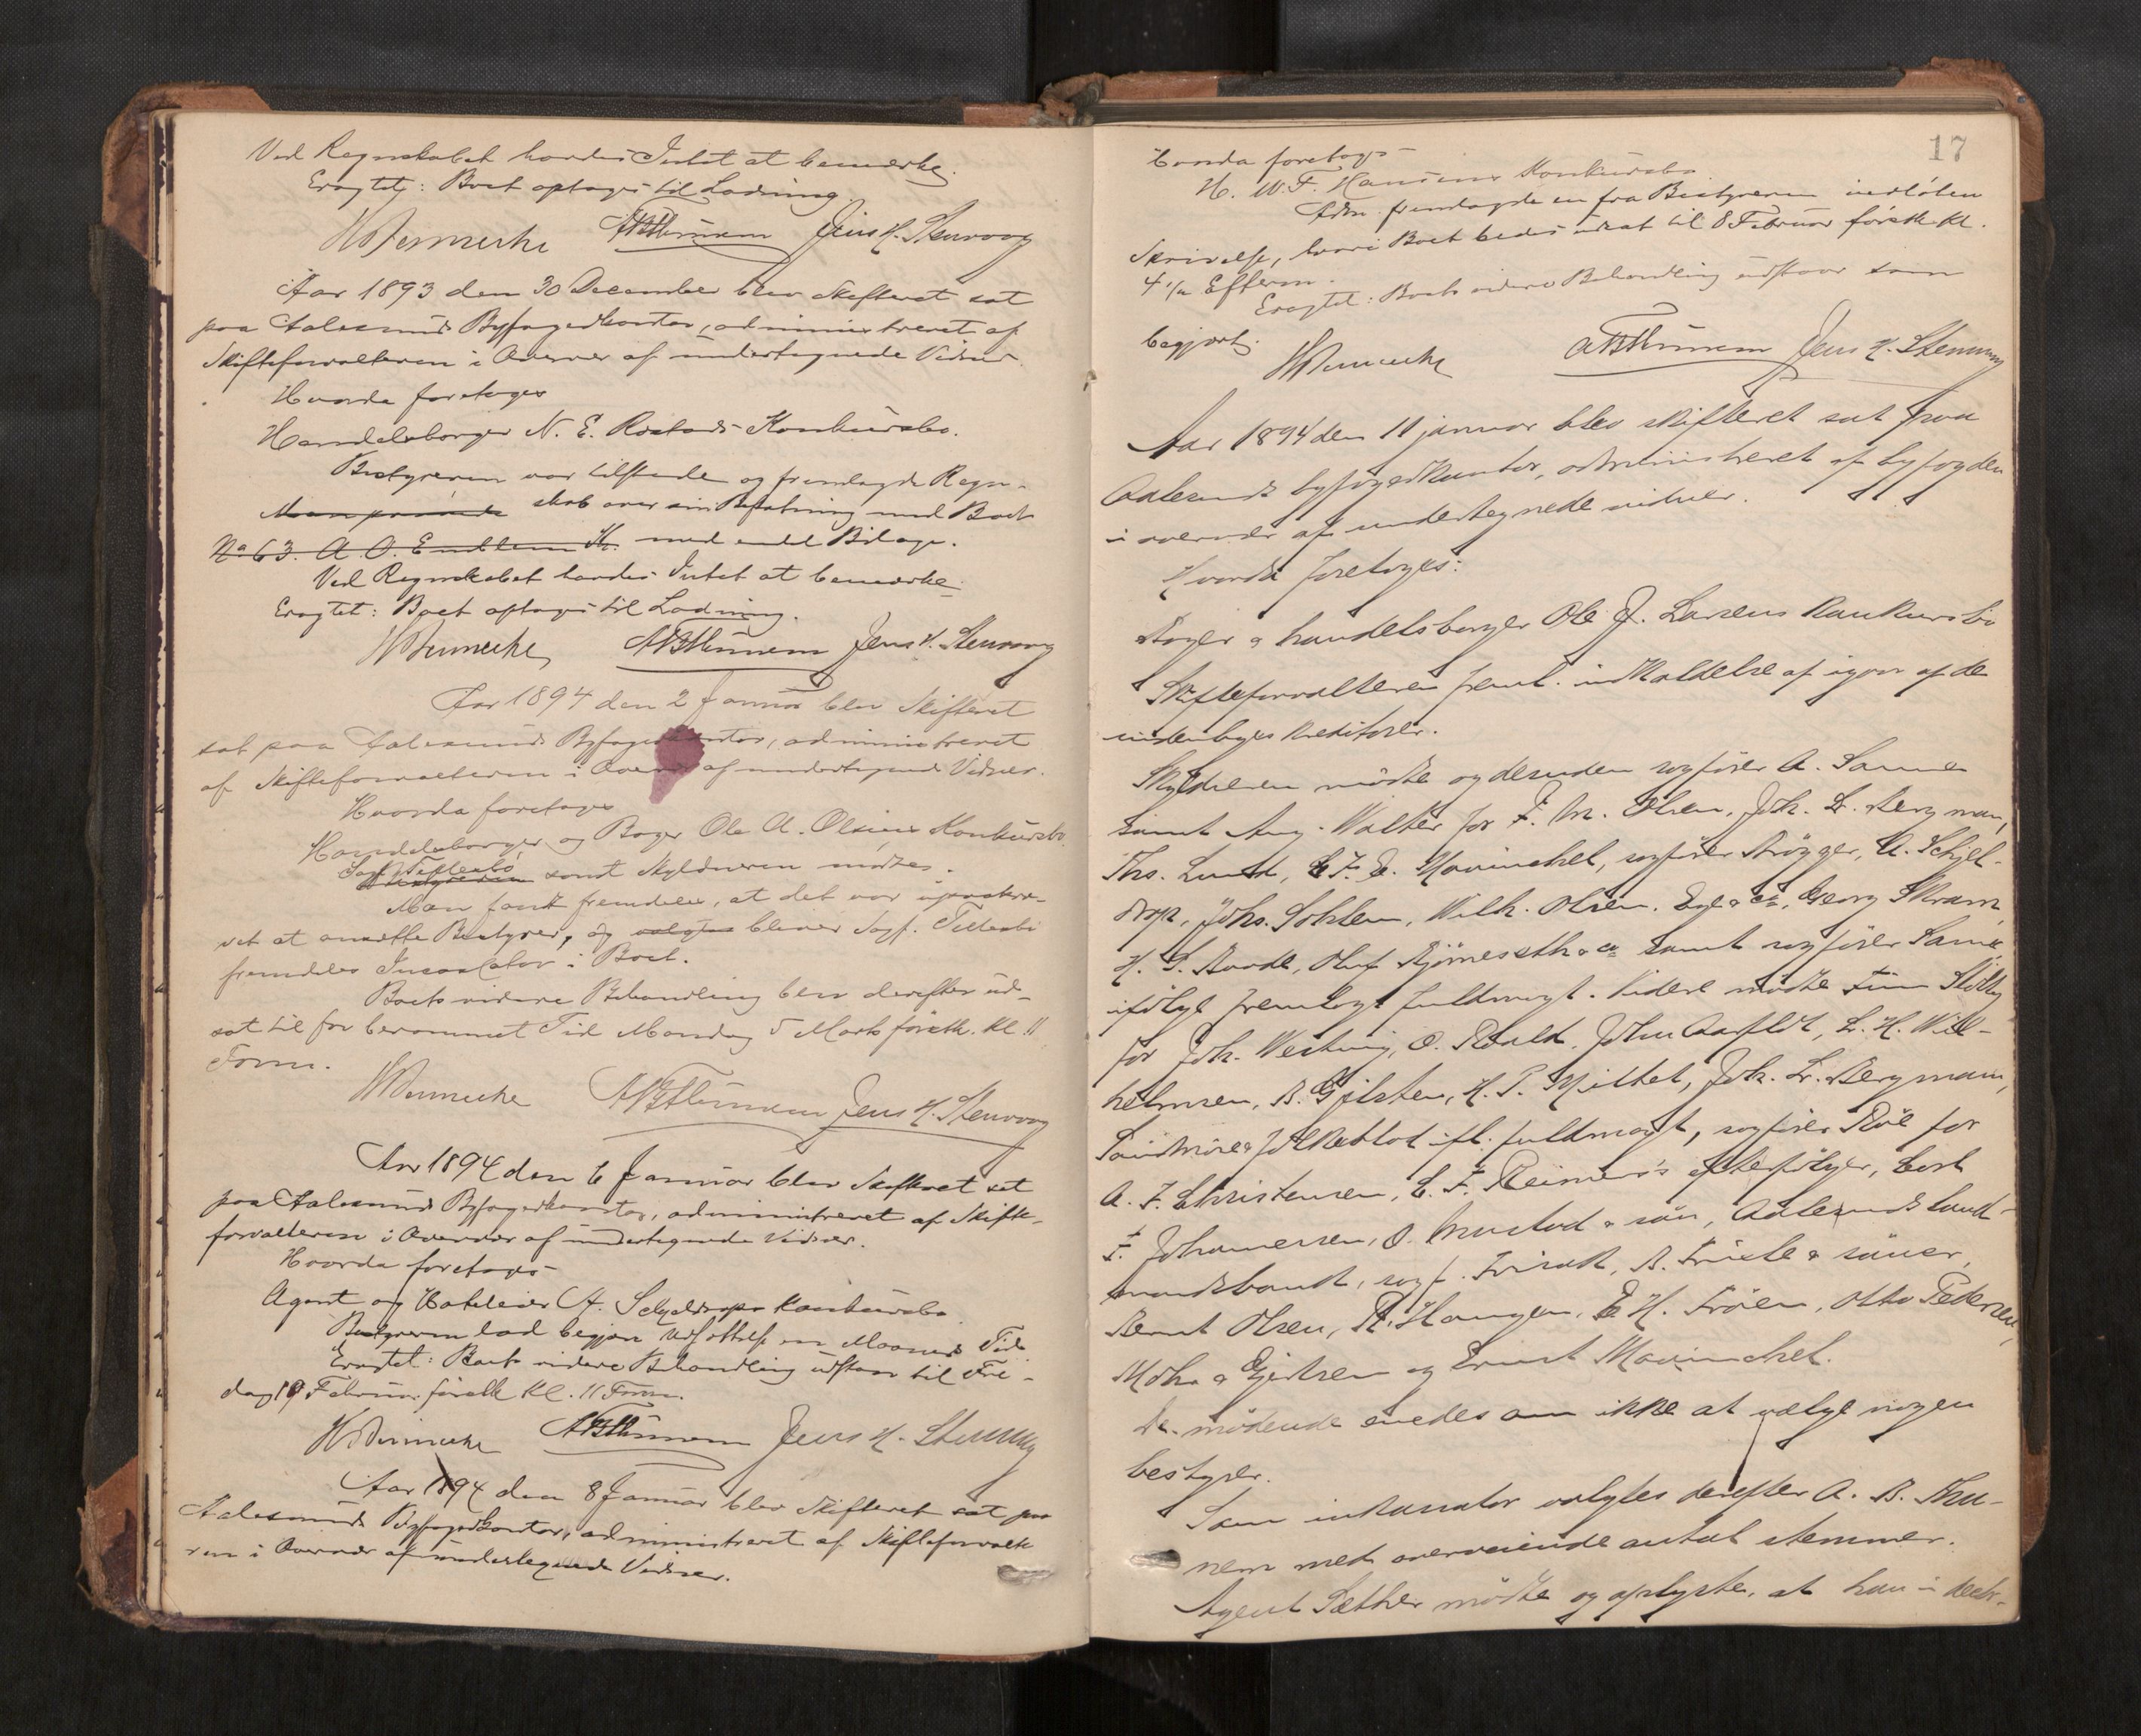 Ved Regnskabet havdes Intet at bemærke.
Eragtet: Boet optages til Lodning.
WBennecke ABThunem Jens H. Stenvaag
Aar 1893 den 30 December blev Skifteret sat
paa Aalesunds Byfogedkontor, administreret af
Skifteforvalteren i Overvær af undertegnede Vidner.
Hvorda foretoges
Handelsborger N. E. Rostads Konkursbo.
Bestyreren var tilstede og fremlagde Regn-
skab over sin Befatning med Boet
No 63. A. O. Emblem Kr. med endel Bilage.
Ved Regnskabet havdes Intet at bemærke.
Eragtet: Boet optages til Lodning.
WBennecke ABThunem Jens H. Stenvaag
Aar 1894 den 2 Januar blev Skifteret
sat paa Aalesunds Byfogedkontor, administreret
af Skifteforvalteren i Overvær af undertegnede Vidner.
Hvorda foretoges
Handelsborger og Bager Ole A. Olsens Konkursbo.
Sagf.
Bestyreren samt Skyldneren mødte.
Man fandt fremdeles, at det var upaakræ-
vet at ansætte Bestyrer, og valgtes blever Sagf.
fremdeles Incassator i Boet.
Boets videre Behandling blev derefter ud-
sat til før berammet Tid Mandag 5 Marts førstk. Kl. 11
Form.
WBennecke ABThunem Jens H. Stenvaag
Aar 1894 den 6 Januar blev Skifteret sat
paa Aalesunds Byfogedkontor, administreret af Skifte-
forvalteren i Overvær af undertegnede Vidner.
Hvorda foretoges
Agent og Hoteleier A. Schjelderups Konkursbo.
Bestyreren lod begjære Udsættelse en Maaneds Tid.
Eragtet: Boets videre Behandling udstaar til Fre-
dag Februar førstk. Kl. 11 Form.
WBennecke ABThunem Jens H. Stenvaag
Aar 1894 den 8 Januar blev Skifteret sat paa
Aalesunds Byfogedkontor, administreret af Skifteforvalte
ren i Overvær af undertegnede Vidner.
17
Hvorda foretoges
H. W. F. Hansens Konkursbo.
Adm. fremlagde en fra Bestyreren indløben
Skrivelse, hvori Boet bedes udsat til 8 Februar førstk. Kl.
4 1/2 Efterm.
Eragtet: Boets videre Behandling udstaar som
begjært.
WBennecke ABThunem Jens H. Stenvaag
Aar 1894 den 11 januar blev skifteret sat paa
Aalesunds byfogedkontor, administreret af byfogden
i overvær af undertegnede vidner.
Hvorda foretoges:
Bager & handelsborger Ole J. Larsens konkursbo
Skifteforvalteren freml. indkaldelse af igaar af de
indenbyes kreditorer.
Skyldneren mødte og desuden sagfører A. Sanne
samt Aug. Walter for F. M. Olsen, Joh. Lr. Bergman,
Ths. Lund, C. F. E. Mowinckel, sagfører Brøgger, A. Schjel-
drup, Johs. Sohlem, Wilh. Olsen. & co, Georg Skram,
H. S. Aarde, Oluf Bjørneseth & co samt sagfører Sanne
ifølge fremlagt fuldmagt. Videre mødte Finn
for Joh. Westwig, O. Roald, John Aarflot, L. H. Wil-
helmsen, B. Gjelsten, H. P. Mittet, Joh. Lr. Bergmann,
Søndmøre folkeblad ifl. fuldmagt, sagfører Røe for
A. F. Christensen, C. F. Reimers's efterfølger, Carl
F. Johannessen, O. Mustad & søn, Aalesunds land-
mandsbank, sagf. Frisak, B. Friele & sønner,
Bernt Olsen, R. Haugen, E. H. Frøen, Otto Pedersen,
Mohn & Gjertsen og Ernst Mowinckel.
De mødende enedes om ikke at vælge nogen
bestyrer.
Som inkassator valgtes derefter A. B. Thu-
nem med overveiende antal stemmer.
Agent Sæther mødte og oplyste, at han i